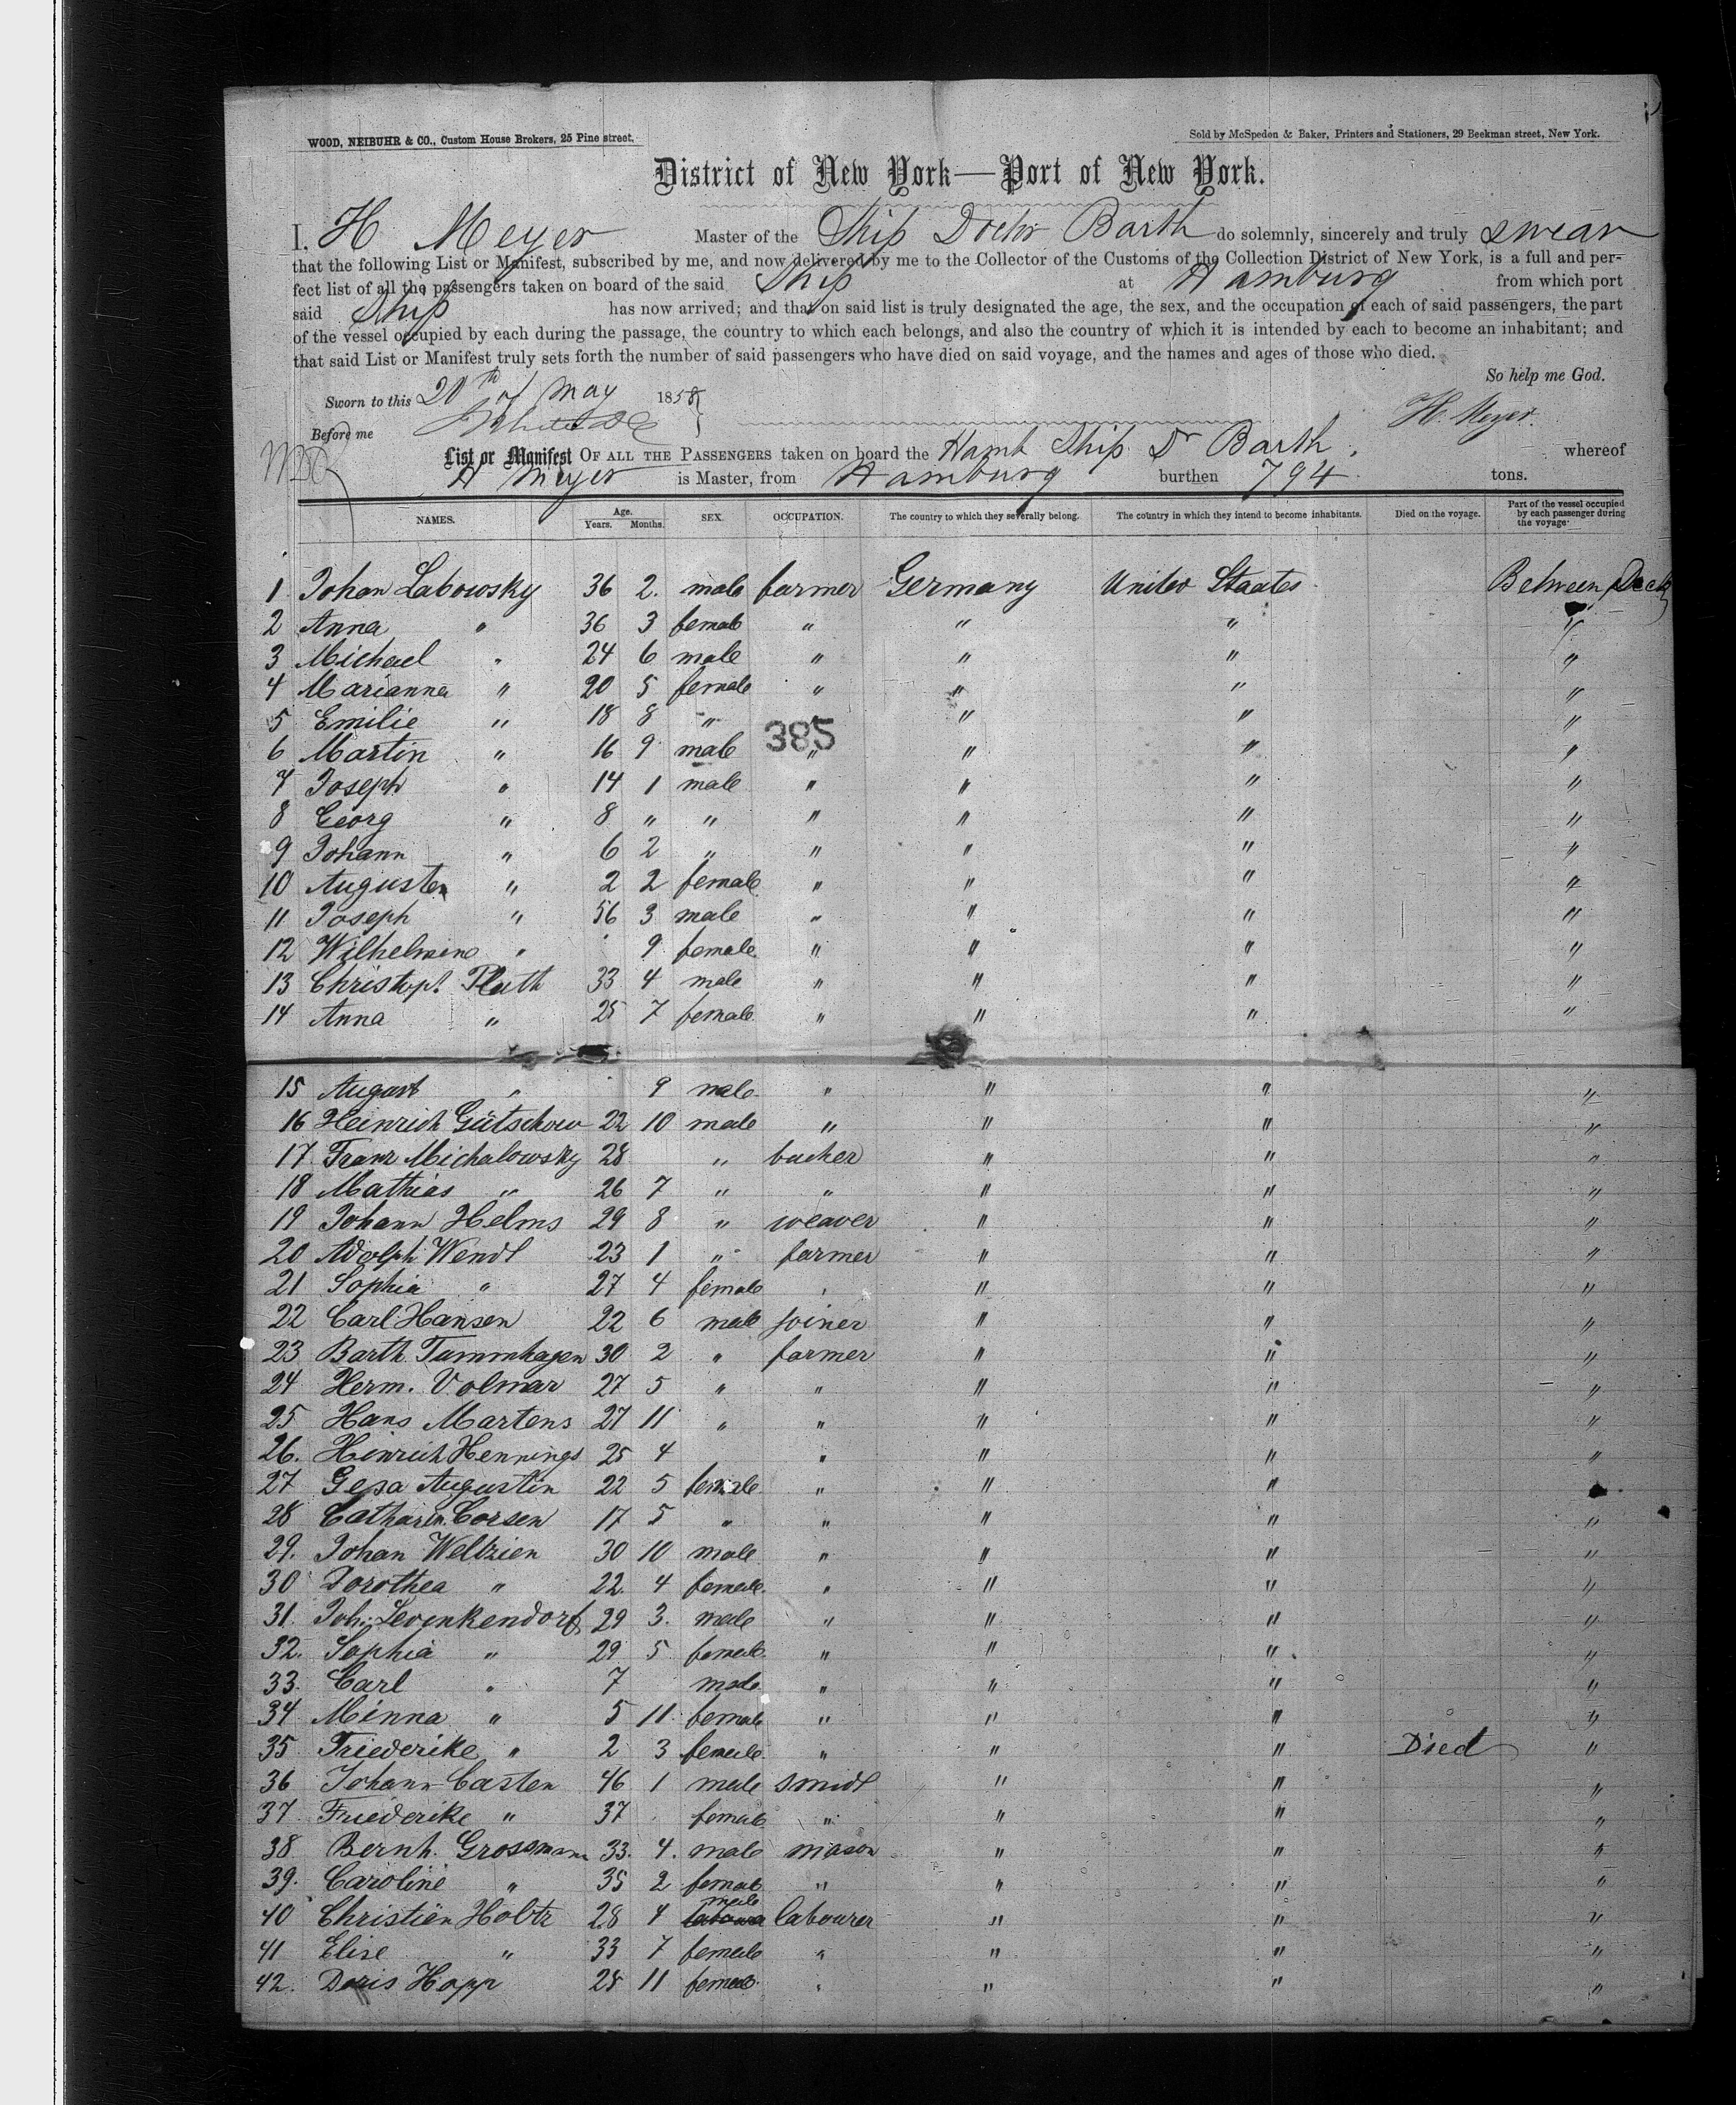 WOOD, NEIBUHR & CO., Custom House Brokers, 25 Pine street.
Sold by McSpedon & Baker, Printers and Stationers, 29 Beekman street, New York.
District of New York—Port of New York.
I, H Meyer Master of the Ship Doctor Barth do solemnly, sincerely and truly swear
that the following List or Manifest, subscribed by me, and now delivered by me to the Collector of the Customs of the Collection District of New York, is a full and per-
fect list of all the passengers taken on board of the said Ship at Hamburg from which port
said Ship has now arrived; and that on said list is truly designated the age, the sex, and the occupation of each of said passengers, the part
of the vessel occupied by each during the passage, the country to which each belongs, and also the country of which it is intended by each to become an inhabitant; and
that said List or Manifest truly sets forth the number of said passengers who have died on said voyage, and the names and ages of those who died.
So help me God.
Sworn to this 20th of May 1858
H. Meyer.
Before me
List or Manifest OF ALL THE PASSENGERS taken on board the Hamb Ship Dr Barth, whereof
H Meyer is Master, from Hamburg burthen 794 tons.
NAMES. Age. Years. Months. SEX. OCCUPATION. The country to which they severally belong. The country in which they intend to become inhabitants. Died on the voyage. Part of the vessel occupied by each passenger during the voyage
1 Johan Labowsky 36 2. male farmer Germany United Staates Between Deck
2 Anna " 36 3 female " " " "
3 Michael " 24 6 male " " " "
4 Marianna " 20 5 female " " " "
5 Emilie " 18 8 " " " " "
385
6 Martin " 16 9 male " " " "
7 Joseph " 14 1 male " " " "
8 Georg " 8 " " " " " "
9 Johann " 6 2 " " " " "
10 Augusten " 2 2 female " " " "
11 Joseph " 56 3 male " " " "
12 Wilhelmine " 9 female " " " "
13 Christoph Plath 33 4 male " " " "
14 Anna " 25 7 female " " " "
15 August " 9 male " " " "
16 Heinrich Gütschow 22 10 male " " " "
17 Franz Michalowsky 28 " bucher " " "
18 Mathias " 26 7 " " " " "
19 Johann Helms 29 8 " weaver " " "
20 Adolph Wendt 23 1 " farmer " " "
21 Sophia " 27 4 female " " " "
22 Carl Hansen 22 6 male joiner " " "
23 Barth. Tummhagen 30 2 " farmer " " "
24 Herm. Volmar 27 5 " " " " "
25 Hans Martens 27 11 " " " " "
26. Hinrich Hennings 25 4 " " " "
27 Gesa Augustin 22 5 female " " "
28 Catharin Corsen 17 5 " " " " "
29. Johan Weltzien 30 10 male " " " "
30 Dorothea " 22 4 female " " " "
31. Joh. Levenkendorf 29 3. male " " " "
32. Sophia " 29 5 female " " " "
33. Carl " 7 male " " " "
34 Minna " 5 11. female " " " "
35 Friederike " 2 3 female " " " Died "
36 Johann Casten 46 1 male smidt " " "
37 Friederike " 37 female " " " "
38 Bernh. Grossmann 33. 4. male mason " " "
39. Caroline " 35 2 female " " " "
40 Christien Holtz 28 4 male labourer " " "
41 Elise " 33 7 female " " " "
42. Doris Hopp 28 11 female " " " "